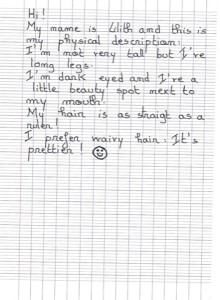 Hi!
My name is Lilith and this is
my physical description:
I'm not very tall but I've
long legs.
I'm dark eyed and I've a
little beauty spot next to
my mouth!
My hair is as straigt as a
ruler!
I prefer waivy hair: It's
prettier!